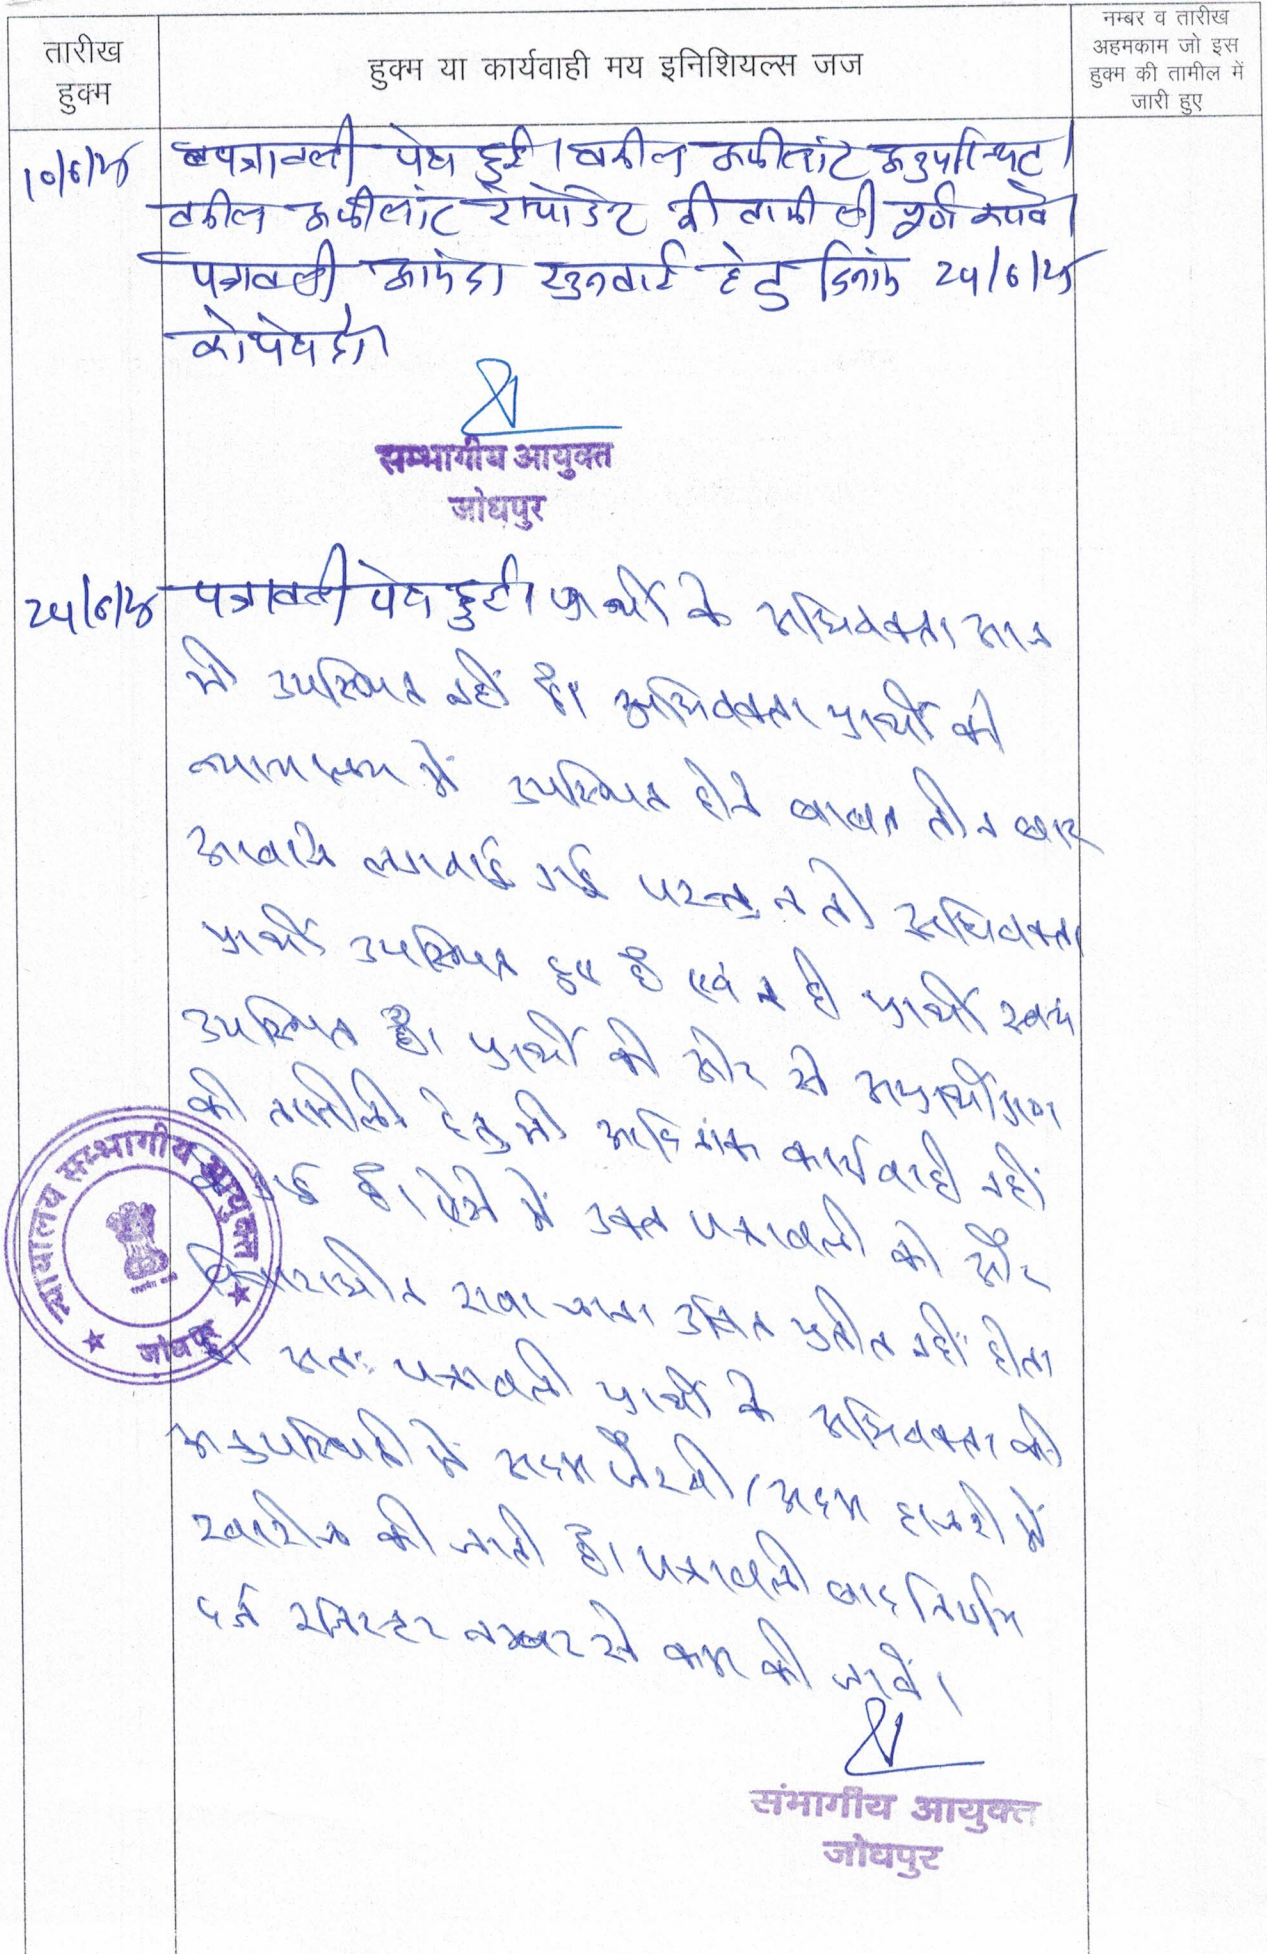 तारीख
हुक्म
हुक्म या कार्यवाही मय इनिशियल्स जज
नम्बर व तारीख
अहमकाम जो इस
हुक्म की तामील में
जारी हुए
10/6/25
पत्रावली पेश हुई। वकील अपीलांट अनुपस्थित।
वकील अपीलांट रेस्पोंडेंट की तामीली पूर्ण करावे।
पत्रावली आईन्दा सुनवाई हेतु दिनांक 24/6/25
को पेश हो।
सम्भागीय आयुक्त
जोधपुर
24/6/25
पत्रावली पेश हुई। प्रार्थी के अधिवक्ता आज
भी उपस्थित नहीं है। अधिवक्ता प्रार्थी को
न्यायालय में उपस्थित होने बाबत तीन बार
आवाजे लगवाई गई परन्तु न तो अधिवक्ता
प्रार्थी उपस्थित हुए है एवं न ही प्रार्थी स्वयं
उपस्थित है। प्रार्थी की ओर से अप्रार्थीगण
की तामीली हेतु भी आदिनांक कार्यवाही नहीं
की गई है। ऐसे में उक्त पत्रावली को और
विचाराधीन रखा जाना उचित प्रतीत नहीं होता
है। अतः पत्रावली प्रार्थी के अधिवक्ता की
अनुपस्थिति में अदम पैरवी/अदम हाजरी में
खारीज की जाती है। पत्रावली बाद निर्णय
दर्ज रजिस्टर नम्बर से कम की जावें।
न्यायालय सम्भागीय आयुक्त
जोधपुर
संभागीय आयुक्त
जोधपुर